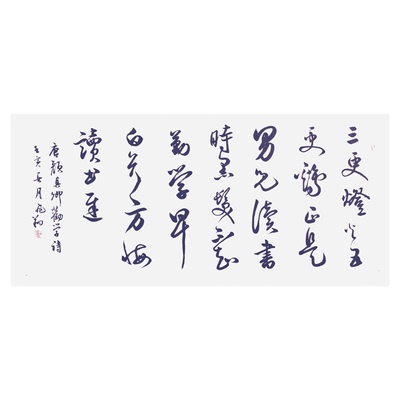 三更燈火五
更鷄正是
男兒讀書
時黑髮不知
勤學早
白首方悔
讀書遲
唐顏真卿勸學詩
壬寅月